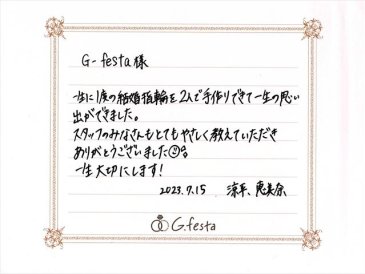 G-festa様
一生に1度の結婚指輪を2人で手作りできて一生の思い
出ができました。
スタッフのみなさんもとてもやさしく教えていただき
ありがとうございました
一生大切にします!
2023.7.15 涼平、恵美奈
G.festa